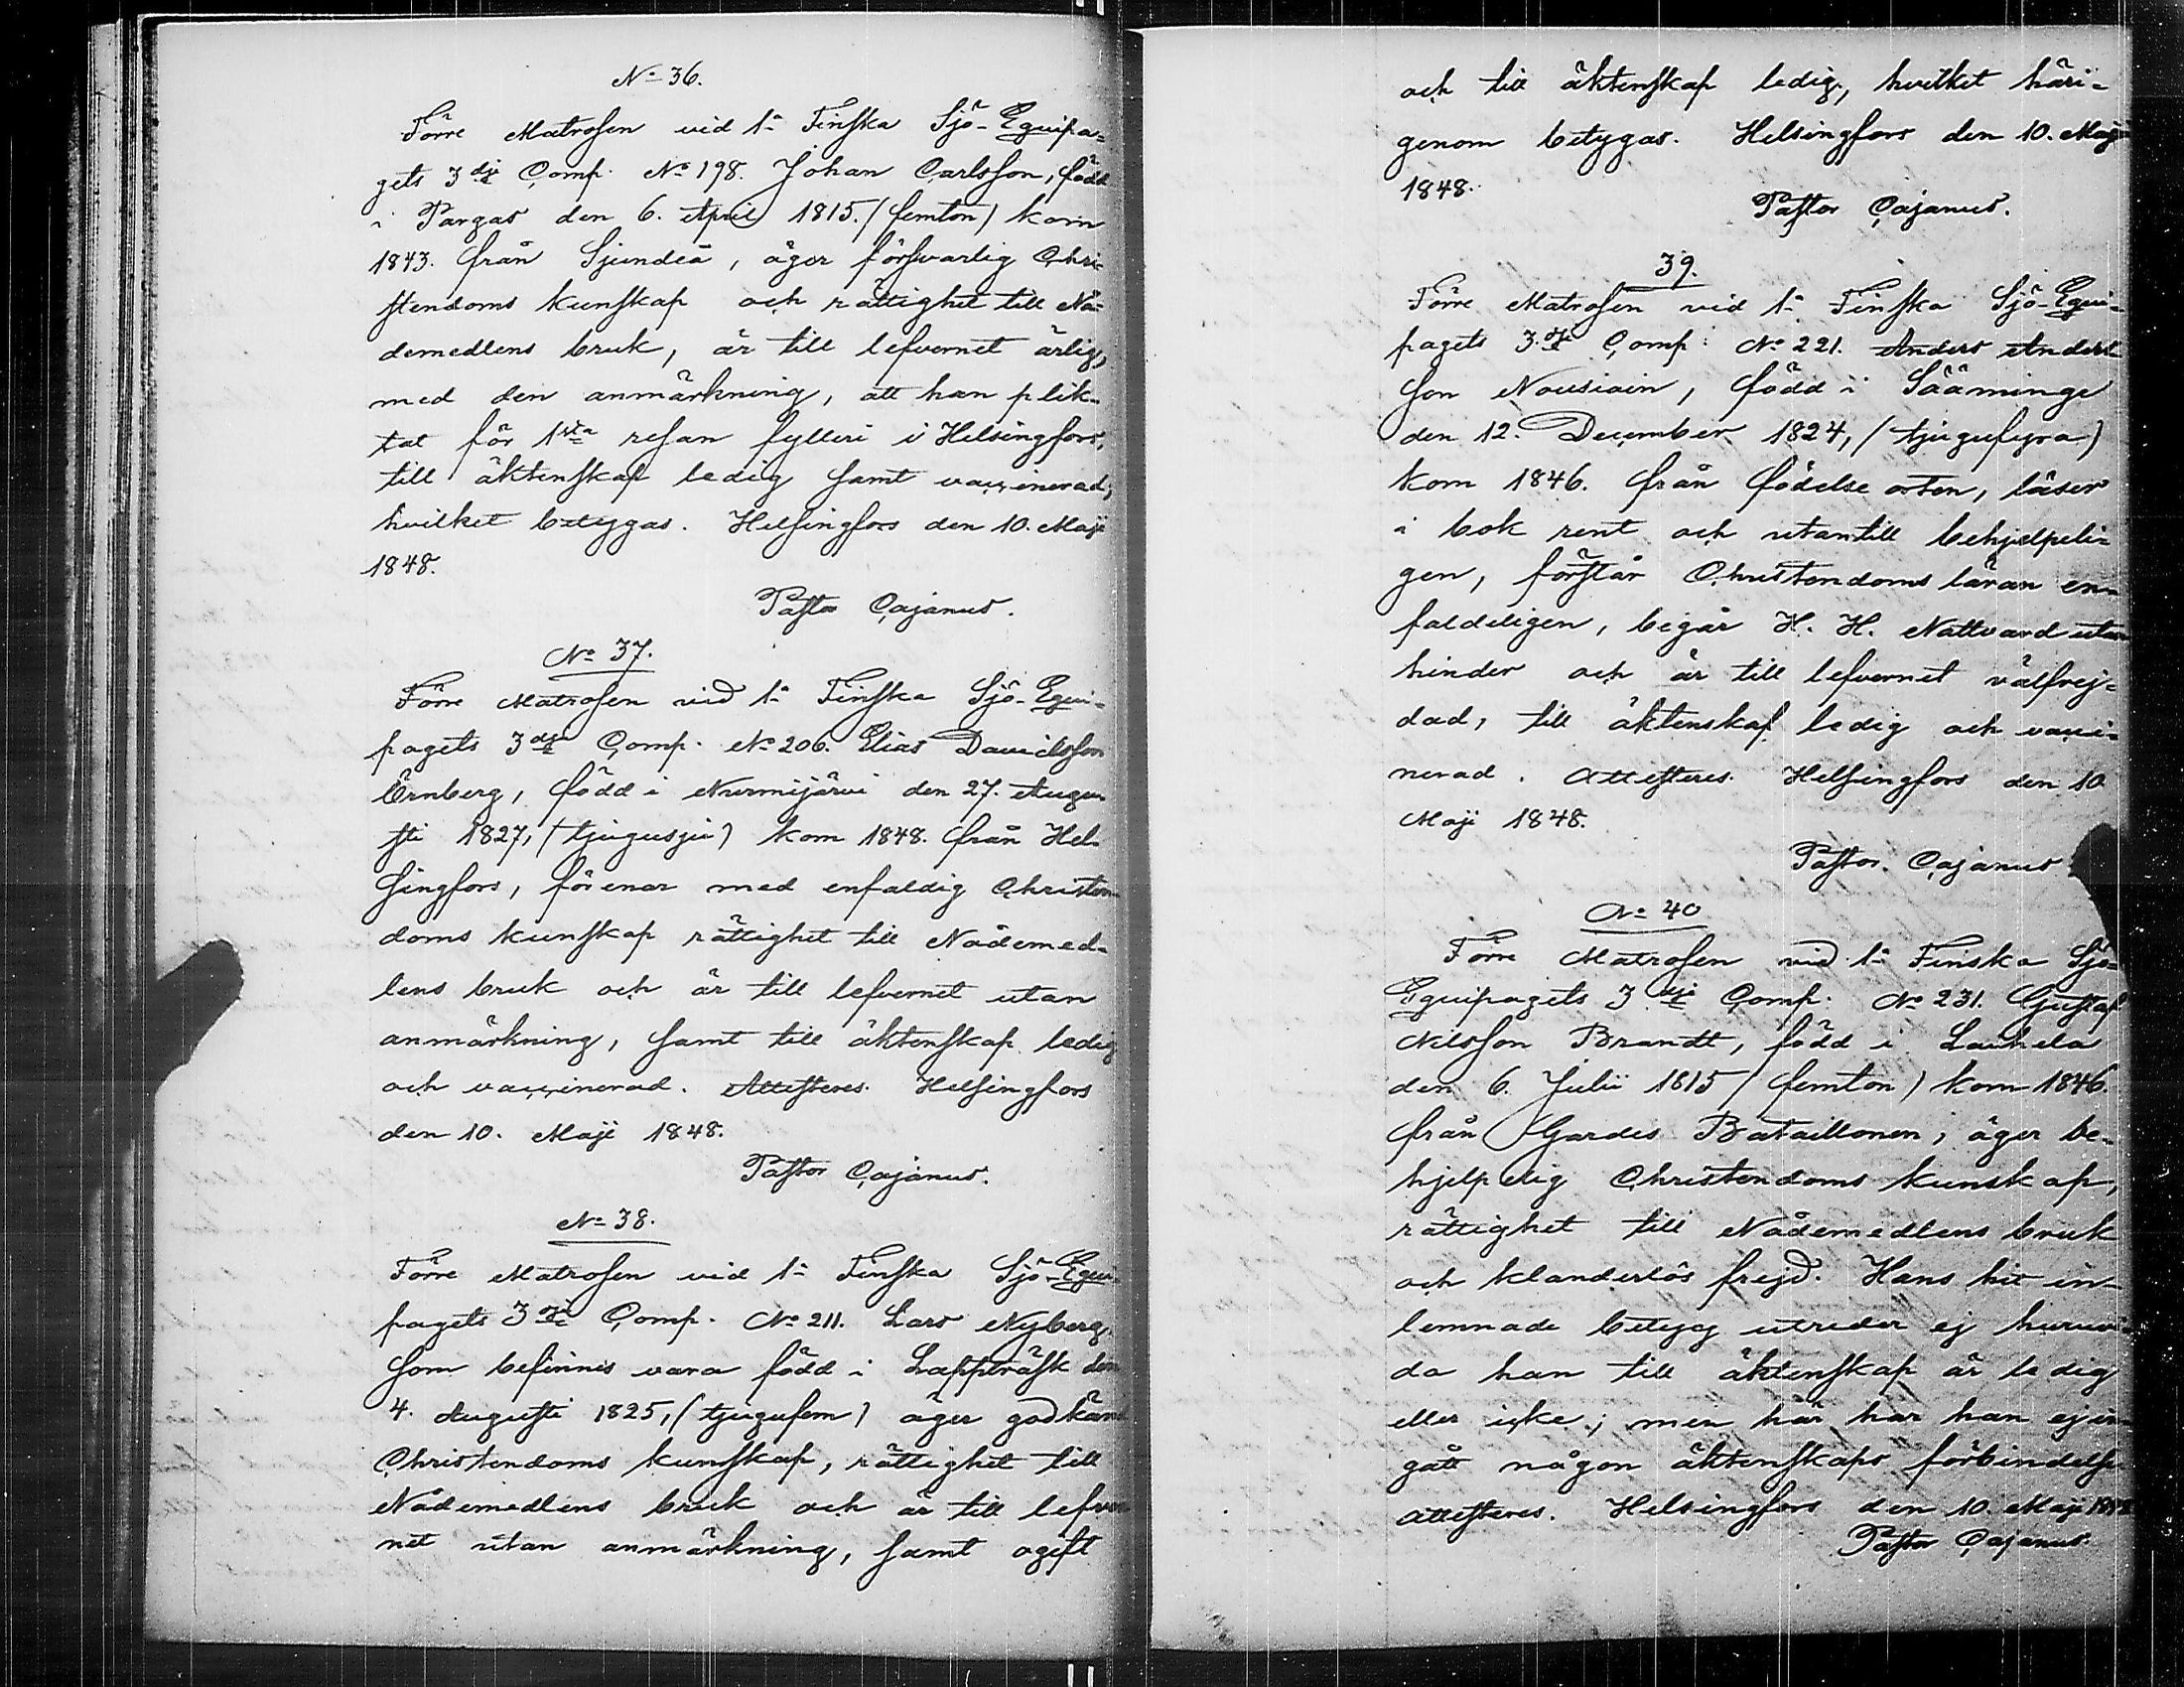 No 36.
Förre Matrosen vid 1a Finska Sjö-Equipa-
gets 3dje Comp. No 198. Johan Carlsson, född
i Pargas den 6. April 1815. (femton) kom
1843. från Sjundeå, äger försvarlig Chri-
stendoms kunskap och rättighet till Nå-
demedlens bruk, är till lefvernet ärlig,
med den anmärkning, att han plik-
tat för 1sta resan fylleri i Helsingfors,
till äktenskap ledig samt vaccinerad,
hvilket betygas. Helsingfors den 10. Maji
1848.
Pastor Cajanus.
No 37.
Förre Matrosen vid 1a Finska Sjö-Equi-
pagets 3dje Comp. No 206. Elias Davidsson
Örnberg, född i Nurmijärvi den 27. Augu-
sti 1827, (tjugusju) kom 1848. från Hel-
singfors, förenar med enfaldig Christen-
doms kunskap rättighet till Nådemed-
lens bruk och är till lefvernet utan
anmärkning, samt till äktenskap ledig
och vaccinerad. Attesteres. Helsingfors
den 10. Maji 1848.
Pastor Cajanus.
No 38.
Förre Matrosen vid 1a Finska Sjö-Equi-
pagets 3dje Comp. No 211. Lars Nyberg,
som befinnes vara född i Lappträsk den
4. Augusti 1825, (tjugufem) äger godkänd
Christendoms kunskap, rättighet till
Nådemedlens bruk och är till lefver-
net utan anmärkning, samt ogift
och till äktenskap ledig, hvilket häri-
genom betygas. Helsingfors den 10. Maji
1848.
Pastor Cajanus.
39.
Förre Matrosen vid 1a Finska Sjö-Equi-
pagets 3dje Comp: No 221. Anders Anders-
son Nousiain, född i Sääminge
den 12. December 1824, (tjugufyra)
kom 1846. från födelse orten, läser
i bok rent och utantill behjelpeli-
gen, förstår Christendoms läran en-
faldeligen, begår H. H. Nattvard utan
hinder och är till lefvernet välfrej-
dad, till äktenskap ledig och vacci-
nerad. Attesteres. Helsingfors den 10
Maji 1848.
Pastor. Cajanus
No 40
Förre Matrosen vid 1a Finska Sjö-
Equipagets 3dje Comp. No 231. Gustaf
Nilsson Brandt, född i Laihela
den 6. Julii 1815 (femton) kom 1846.
från Gardes Bataillonen, äger be-
hjelplig Christendoms kunskap,
rättighet till Nådemedlens bruk
och klanderlös frejd. Hans hit in-
lemnade betyg utreder ej huruvi-
da han till äktenskap är ledig
eller icke; men här har han ej in-
gått någon äktenskaps förbindelse
attesteres. Helsingfors den 10. Maji 1848
Pastor Cajanus.